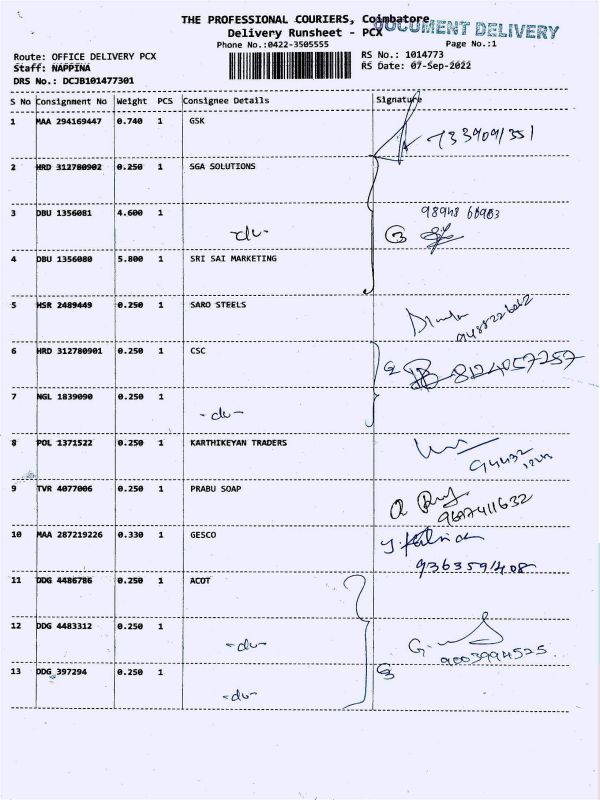 THE PROFESSIONAL COURIERS, Coimbatore
DOCUMENT DELIVERY
Delivery Runsheet - PCX
Phone No.:0422-3505555
Page No.:1
Route: OFFICE DELIVERY PCX
RS No.: 1014773
Staff: NAPPINA
RS Date: 07-Sep-2022
DRS No.: DCJB101477301
S No Consignment No Weight PCS Consignee Details Signature
1 MAA 294169447 0.740 1 GSK
7339091351
2 HRD 312780902 0.250 1 SGA SOLUTIONS
3 DBU 1356081 4.600 1
98948 60903
-do-
3
4 DBU 1356080 5.800 1 SRI SAI MARKETING
5 HSR 2489449 0.250 1 SARO STEELS
6 HRD 312780901 0.250 1 CSC
2
8124057257
7 NGL 1839090 0.250 1
-do-
8 POL 1371522 0.250 1 KARTHIKEYAN TRADERS
94432
9 TVR 4077006 0.250 1 PRABU SOAP
9697411632
10 MAA 287219226 0.330 1 GESCO
9363591408
11 DDG 4486786 0.250 1 ACOT
12 DDG 4483312 0.250 1
-do-
G.
9003994525
13 DDG 397294 0.250 1
3
-do-